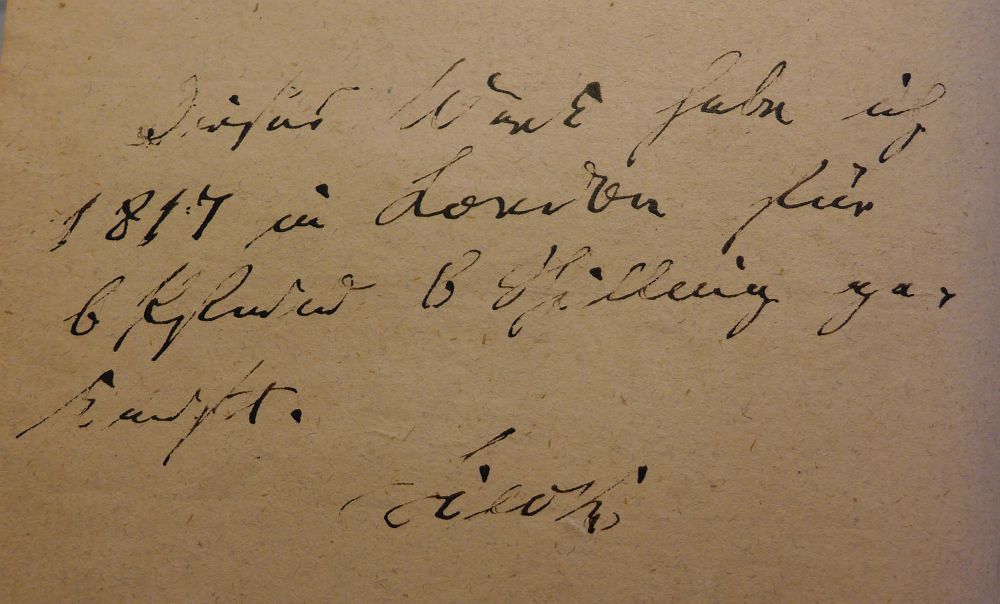 Dieses Werk habe ich
1817 in London für
6 Pfund 6 Schilling ge-
kauft.
Tieck